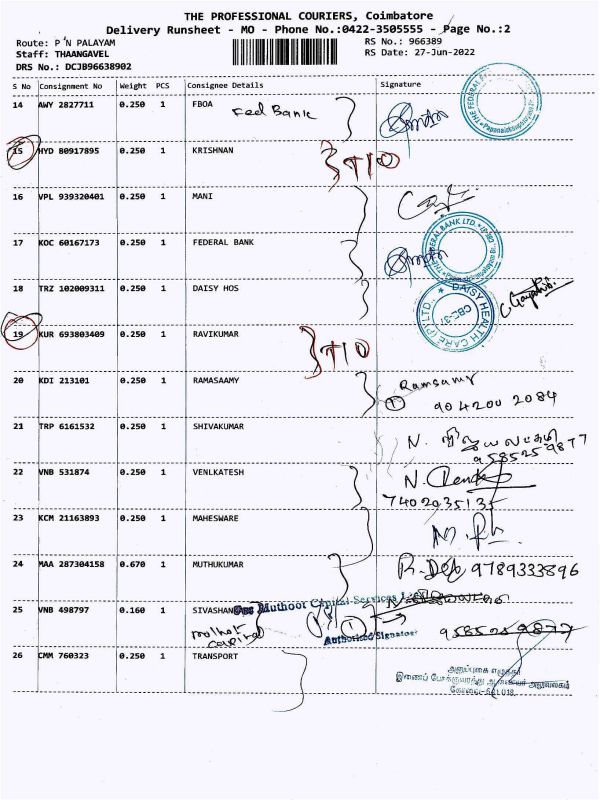 THE PROFESSIONAL COURIERS, Coimbatore
Delivery Runsheet - MO - Phone No.:0422-3505555 - Page No.:2
Route: P N PALAYAM
Staff: THAANGAVEL
DRS No.: DCJB96638902
RS No.: 966389
RS Date: 27-Jun-2022
S No Consignment No Weight PCS Consignee Details Signature
14 AWY 2827711 0.250 1 FBOA
Fed Bank
THE FEDERAL
15 HYD 80917895 0.250 1 KRISHNAN
16 VPL 939320401 0.250 1 MANI
17 KOC 60167173 0.250 1 FEDERAL BANK
BANK LTD.
18 TRZ 102009311 0.250 1 DAISY HOS
DAISY HEALTH CARE (P) LTD.
19 KUR 693803409 0.250 1 RAVIKUMAR
20 KDI 213101 0.250 1 RAMASAAMY
Ramsamy
904200 2084
21 TRP 6161532 0.250 1 SHIVAKUMAR
N. விஜயலட்சுமி
9585259877
22 VNB 531874 0.250 1 VENLKATESH
7402035135
23 KCM 21163893 0.250 1 MAHESWARE
24 MAA 287304158 0.670 1 MUTHUKUMAR
9789333896
25 VNB 498797 0.160 1 SIVASHAN
Muthoot Capital Services
Authorised Signator
9585259877
26 CMM 760323 0.250 1 TRANSPORT